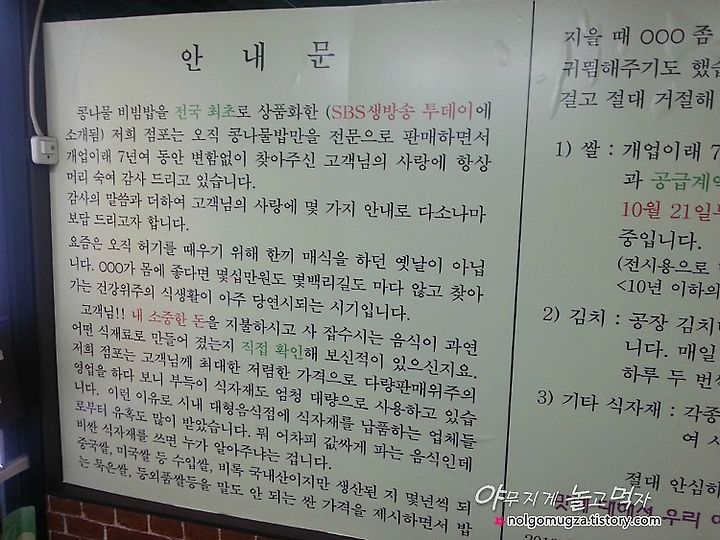 안 내 문
콩나물 비빔밥을 전국 최초로 상품화한 (SBS생방송 투데이에
소개됨) 저희 점포는 오직 콩나물밥만을 전문으로 판매하면서
개업이래 7년여 동안 변함없이 찾아주신 고객님의 사랑에 항상
머리 숙여 감사 드리고 있습니다.
감사의 말씀과 더하여 고객님의 사랑에 몇 가지 안내로 다소나마
보답 드리고자 합니다.
요즘은 오직 허기를 때우기 위해 한끼 매식을 하던 옛날이 아닙
니다. OOO가 몸에 좋다면 몇십만원도 몇백리길도 마다 않고 찾아
가는 건강위주의 식생활이 아주 당연시되는 시기입니다.
고객님!! 내 소중한 돈을 지불하시고 사 잡수시는 음식이 과연
어떤 식재료로 만들어 졌는지 직접 확인해 보신적이 있으신지요.
저희 점포는 고객님께 최대한 저렴한 가격으로 다량판매위주의
영업을 하다 보니 부득이 식자재도 엄청 대량으로 사용하고 있습
니다. 이런 이유로 시내 대형음식점에 식자재를 납품하는 업체들
로부터 유혹도 많이 받았습니다. 뭐 어차피 값싸게 파는 음식인데
비싼 식자재를 쓰면 누가 알아주냐는 겁니다.
중국쌀, 미국쌀 등 수입쌀, 비록 국내산이지만 생산된 지 몇년씩 되
는 묵은쌀, 등외품쌀등을 말도 안 되는 싼 가격을 제시하면서 밥
지을 때 OOO 좀
귀띔해주기도 했습
걸고 절대 거절해
1) 쌀 : 개업이래 7
과 공급계약
10월 21일부
중입니다.
(전시용으로
<10년 이하의
2) 김치 : 공장 김치
니다. 매일
하루 두 번
3) 기타 식자재 : 각종
여 사
절대 안심하
우리
야무지게 놀고먹자
nolgomugza.tistory.com